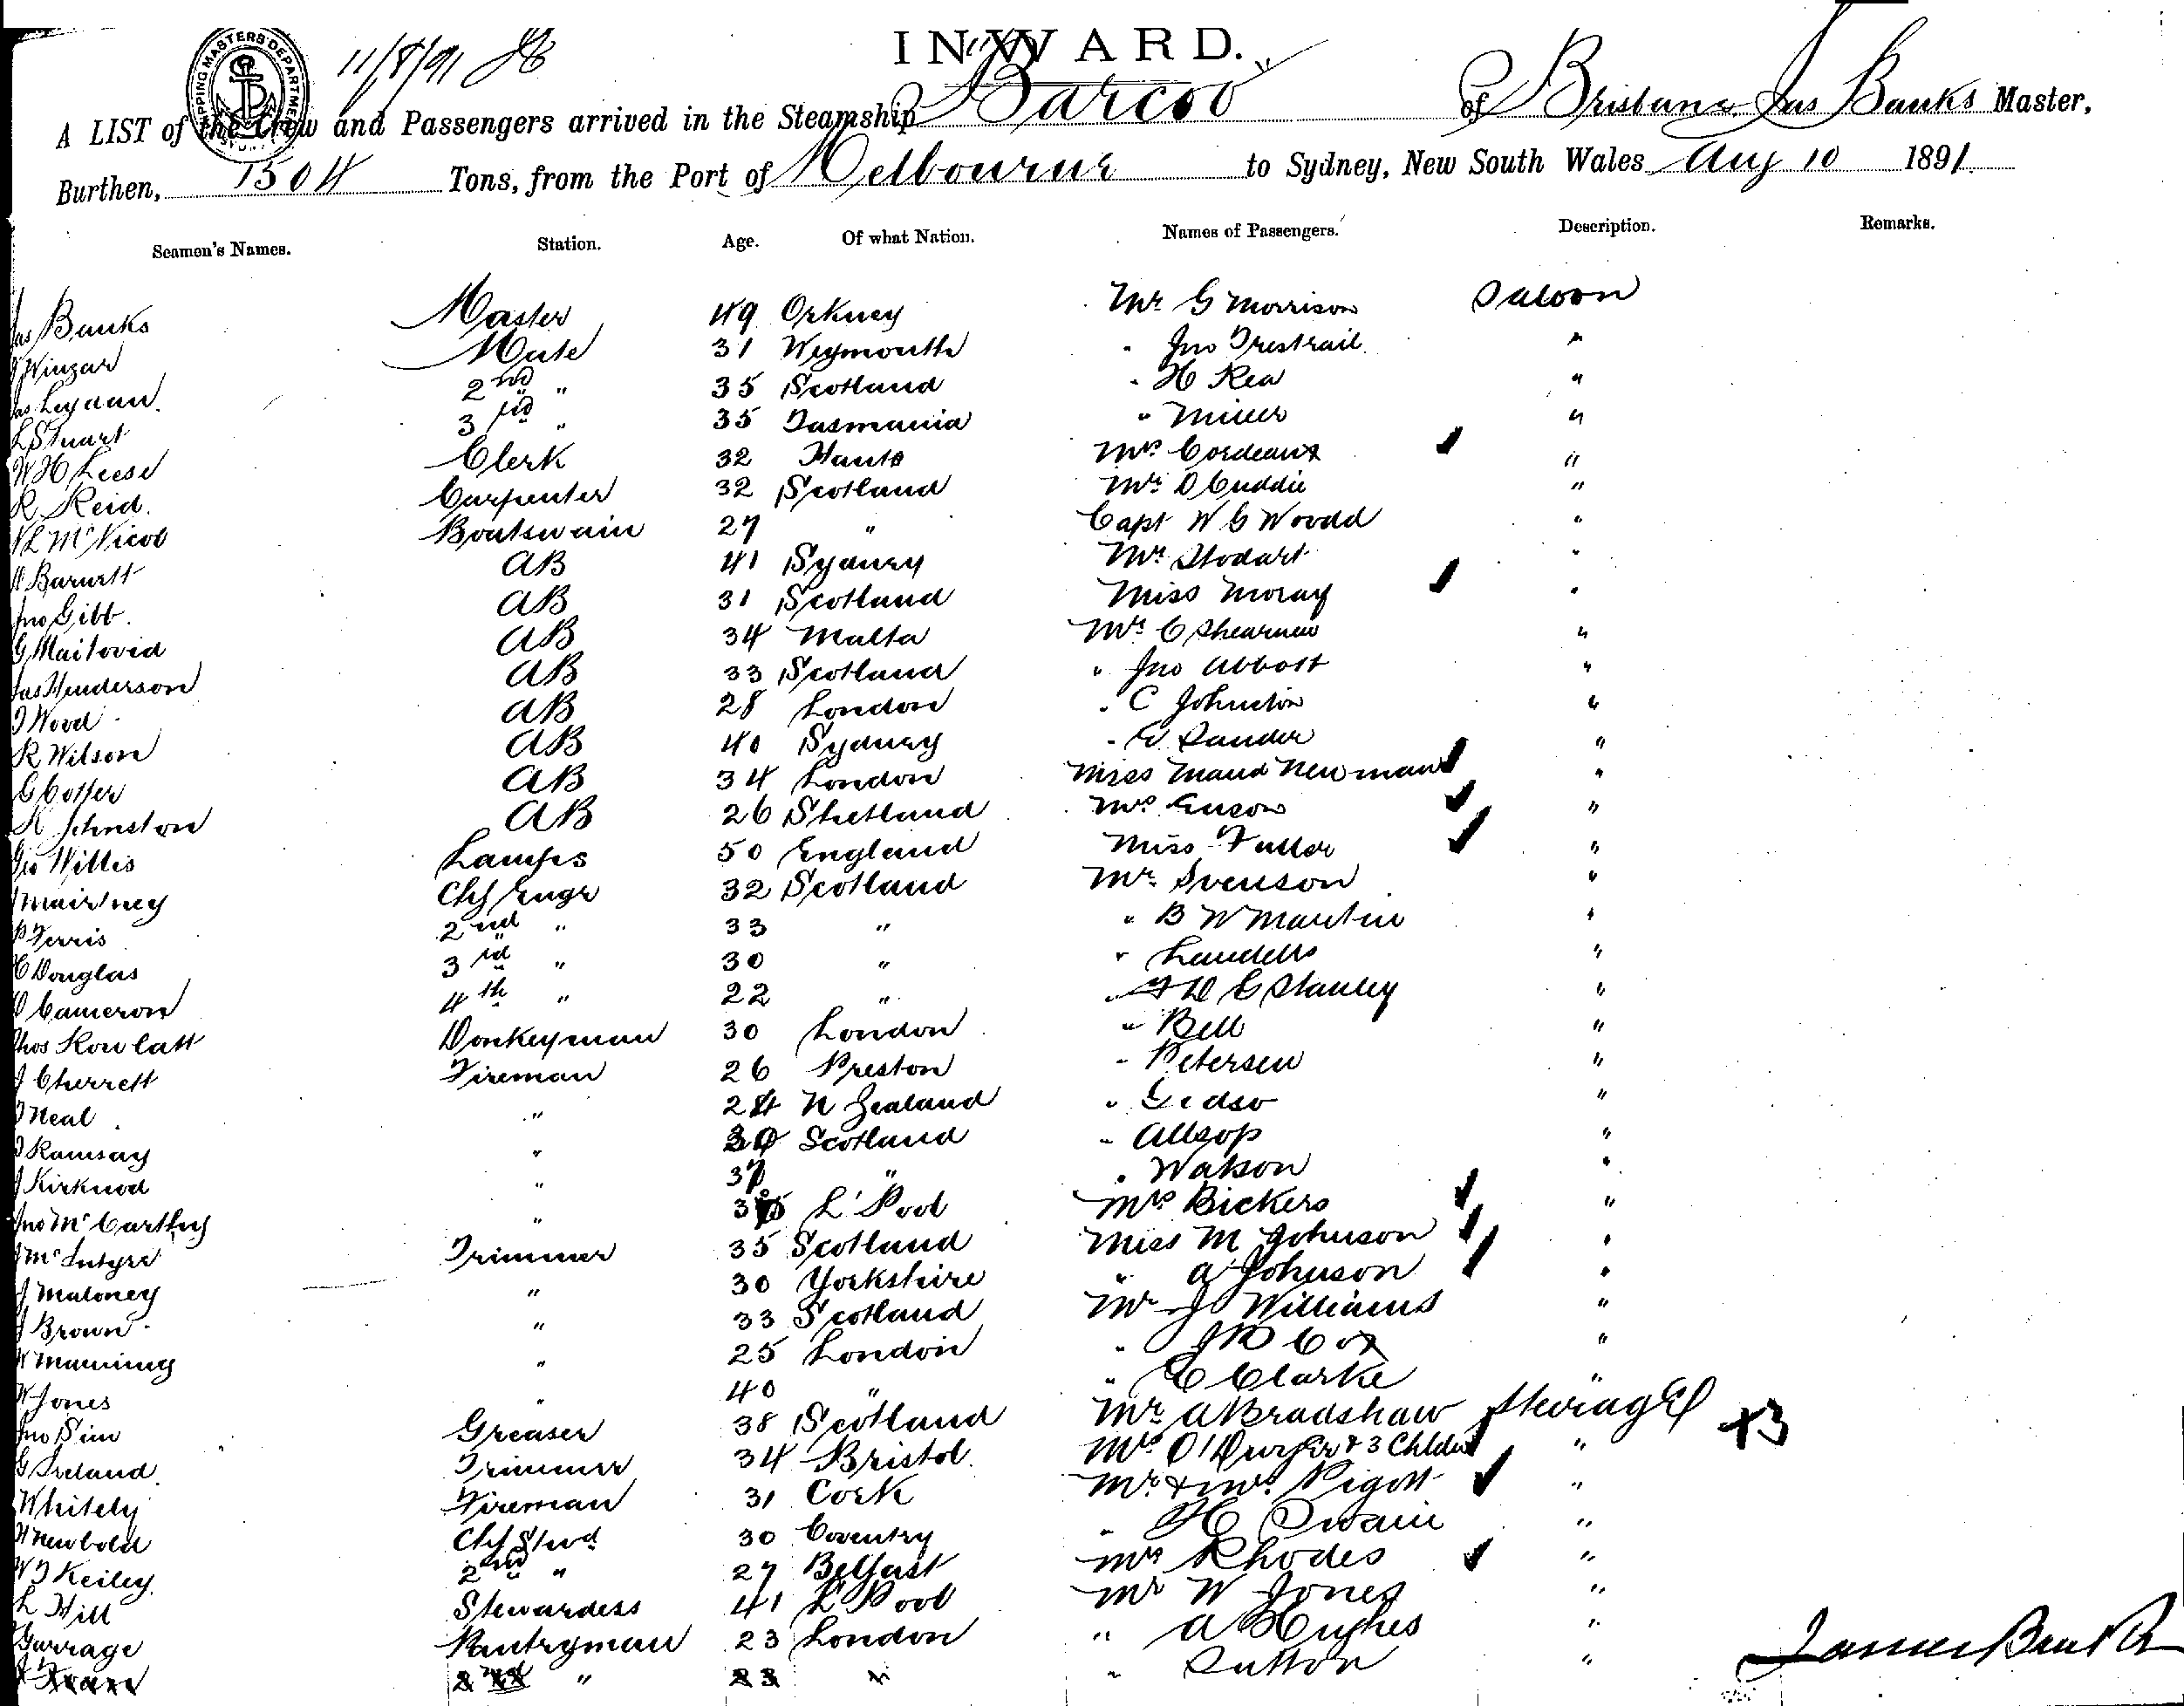 INWARD.
11/8/91
A LIST of the Crew and Passengers arrived in the Steamship Barcoo of Brisbane Jas Banks Master,
Burthen, 1504 Tons, from the Port of Melbourne to Sydney, New South Wales Aug 10 1891
Seamen's Names. Station. Age. Of what Nation. Names of Passengers. Description. Remarks.
Jas Banks Master 49 Orkney Mr G Morrison Saloon
Winzar Mate 31 Weymouth " Jno Trestrail "
Jas Leydan 2nd " 35 Scotland " H Rea "
L Stuart 3rd " 35 Tasmania " Miller "
W H Leese Clerk 32 Hants Mrs Cordeaux "
R Reid. Carpenter 32 Scotland Mr D Cuddie "
McNicol Boatswain 27 " Capt W G Woodd "
Barnett AB 41 Sydney Mr Stodart "
Jno Gibb. AB 31 Scotland Miss Moray "
G AB 34 Malta Mr C Shearman "
Jas Henderson AB 33 Scotland " Jno Abbott "
J Wood AB 28 London " C Johnston "
R Wilson AB 40 Sydney " Sander "
G Cotter AB 34 London Miss Maud Newman "
Johnston AB 26 Shetland Mrs "
Geo Willis Lamps 50 England Miss Fuller "
Mairtney Chf Engr 32 Scotland Mr Svenson "
P Ferris 2nd " 33 " " B W Martin "
C Douglas 3rd " 30 " " Landells "
D Cameron 4th " 22 " " F D G Stanley "
Thos Rowlatt Donkeyman 30 London " Bell "
J Cherrett Fireman 26 Preston " Petersen "
J Neal " 24 N Zealand " "
J Ramsay " 30 Scotland " Allsop "
J Kirkwod " 37 " " Watson "
Jno McCarthy " L'Pool Mrs Bickers "
J McIntyre Trimmer 35 Scotland Miss M Johnson "
J Maloney " 30 Yorkshire " A Johnson "
J Brown " 33 Scotland Mr J Williams "
W Manning " 25 London " J R Cox "
W Jones " 40 " " C Clarke "
Jno Sim Greaser 38 Scotland Mr A Bradshaw Steerage
G Ireland Trimmer 34 Bristol. Mrs O'Dwyer & 3 Chldn " +3
Whitely Fireman 31 Cork Mr & Mrs Pigott "
H Newbold Chf Stwd 30 Coventry " H Swain "
W J Keiley. 2nd " 27 Belfast Mrs Rhodes "
L Hill Stewardess 41 L'Pool Mr W Jones "
Garrage Pantryman 23 London " A Hughes "
2nd " 23 " " Sutton "
James Banks